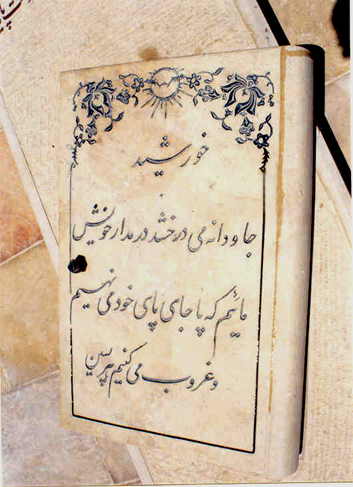 خورشید
جاودانه می درخشد در مدار خویش
مائیم که پا جای پای خود می نهیم
و غروب می کنیم هر پسین